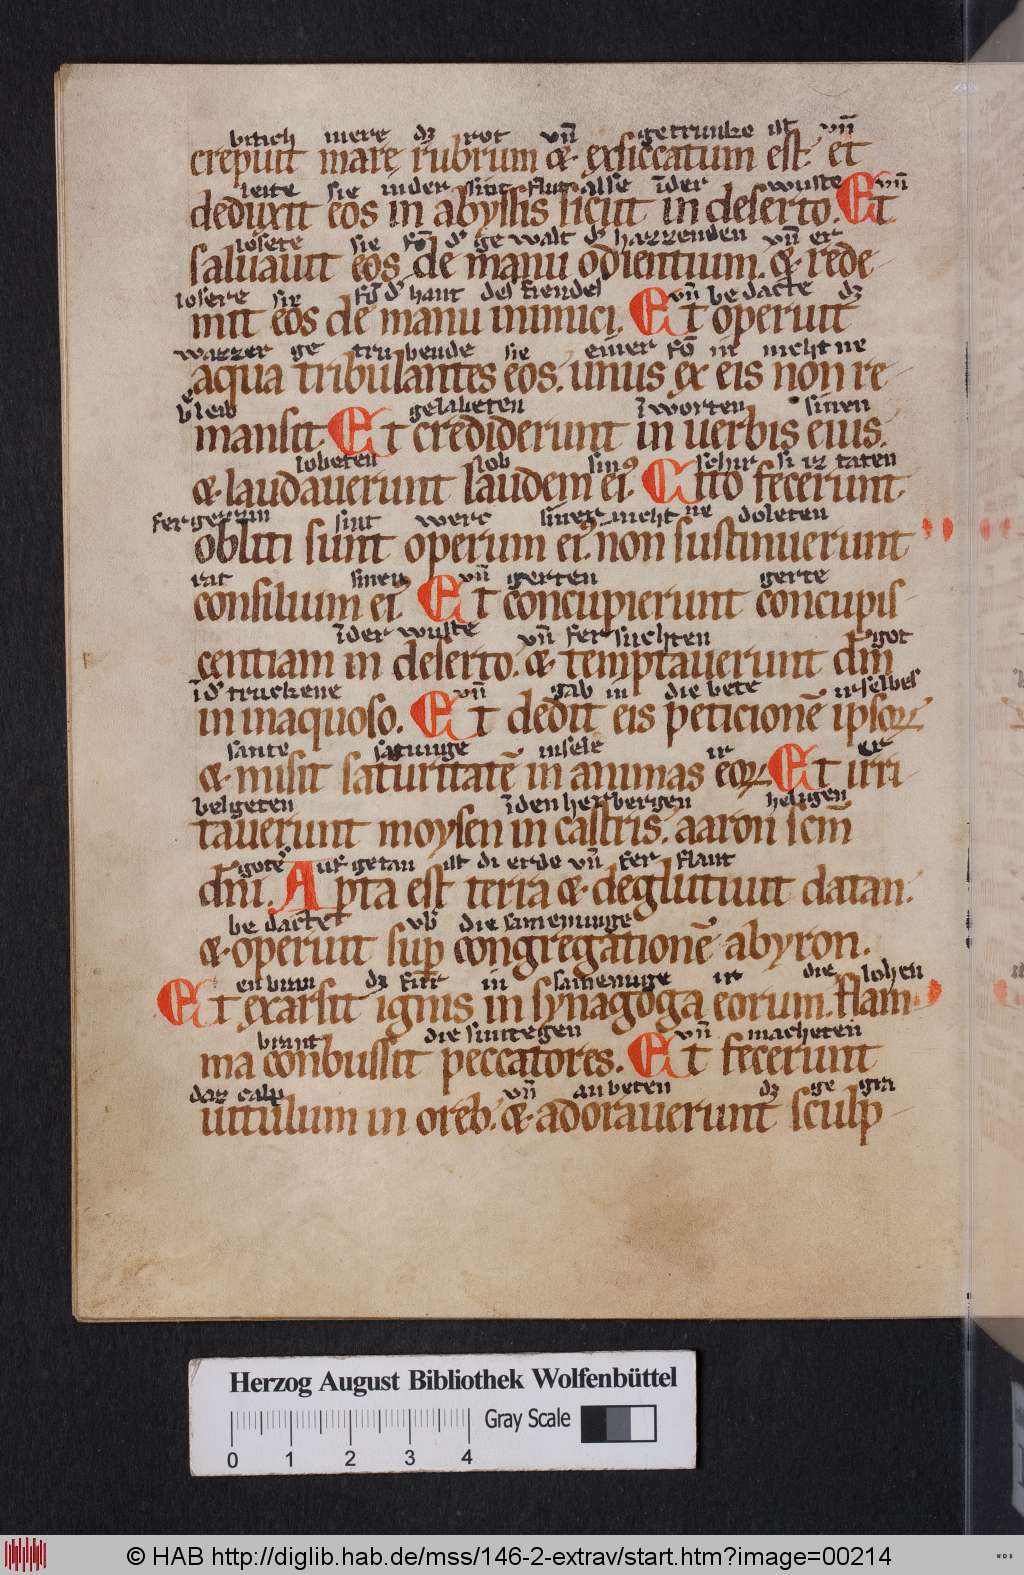 brach mere dz rot vn̄ getrunke ist vn̄
crepuit mare rubrum & exsiccatum est. et
leite sie inder flut alse īder wuste vn̄
deduxit eos in abyssis sicut in deserto. Et
losete sie fō d' ge walt d' hazzenden vn̄ er
saluauit eos de manu odientium. & rede
losere sie fō d' hant des fiendes vn̄ be dacte dz
mit eos de manu inimici. Et operuit
wazzer ge trubende sie einer fō in nicht ne
aqua tribulantes eos. unus ex eis non re
bleib gelabeten ī worten sinen
mansit. Et crediderunt in uerbis eius.
lobeten lob sin schir si iz taten
& laudauerunt laudem ei. Cito fecerunt
fergezzin sint werc nicht ne doleten
obliti sunt operum ei. non sustinuerunt
rat sinen vn̄ gerten gerte
consilium ei. Et concupierunt concupis
īder wuste vn̄ fersuchten got
centiam in deserto. & temptauerunt dm̄
ī d' truckene vn̄ gab in die bete inselbes
in inaquoso. Et dedit eis peticionē ipsoꝝ
sante satunge insele ir er
& misit saturitatē in animas eoꝝ. Et irri
belgeten īden herbergen heligen
tauerunt moysen in castris. aaron scm̄
gotes uf getan ist di erde vn̄ fer slant
dn̄i. Apta est terra & deglutiuit datan.
be dactet vb' die samenunge
& operuit sup̄ congregationē abyron.
enbran dz fur in samenuge ir die lohen
Et exarsit ignis in synagoga eorum. flam
brant die suntegen vn̄ macheten
ma conbussit peccatores. Et fecerunt
daz calp vn̄ an beten dz ge gra
uitulum in oreb. & adorauerunt sculp
Herzog August Bibliothek Wolfenbüttel
Gray Scale
0 1 2 3 4
© HAB http://diglib.hab.de/mss/146-2-extrav/start.htm?image=00214